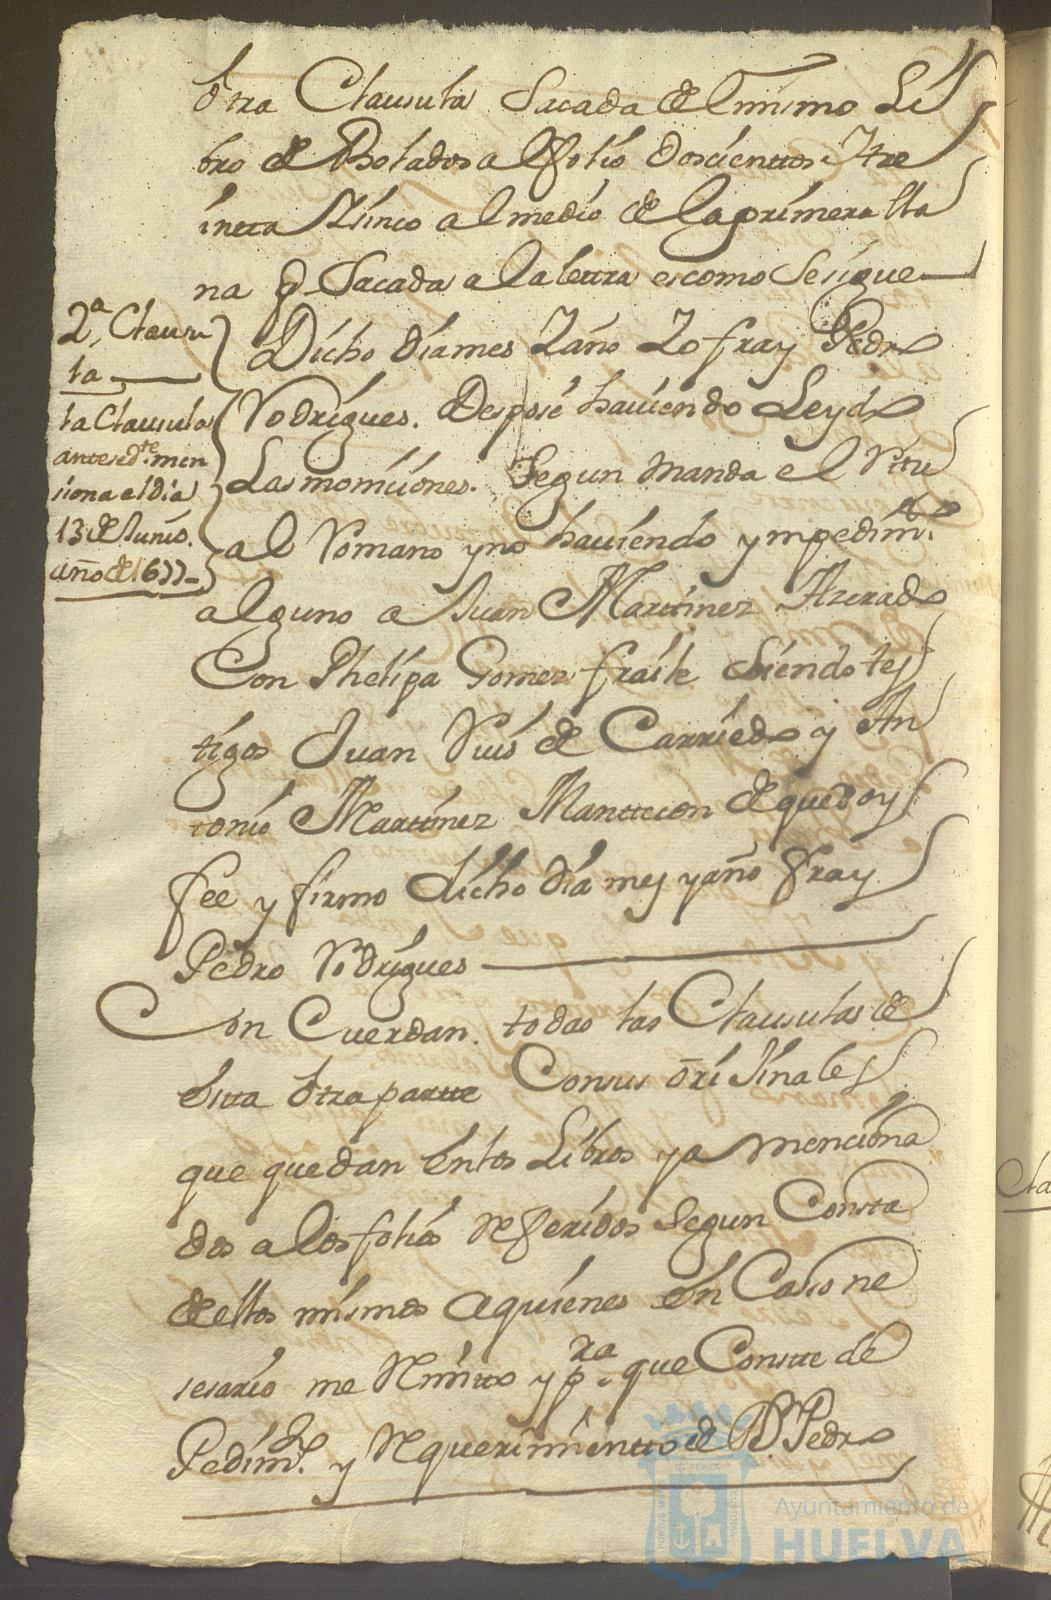 Otra Clausula Sacada de el mismo Li
bro de Bolados al folio Doscientos Ytre
inta Zinco al medio de la primera lla
na q Sacada a la letra es como Se sigue
2ª Clausu
la
la Clausula
antesedte men
siona el dia
13 de Junio
año de 1677
Dicho dia mes Y año Yo fray Pedro
Rodrigues. Desposé haviendo Leydo
Las moniciones. Segun Manda el Ritu
al Romano y no haviendo ympedimto
alguno a Juan Martinez Azerado
Con Phelipa Gomez fraile Siendo tes
tigos Juan Ruis de Carriedo y An
tonio Martinez Mantecon de que doy
fee y firmo dicho dia mes y año Fray
Pedro Rodrigues
Con Cuerdan. todas las Clausulas de
esta Otra parte Con sus orijinales
que quedan en los Libros ya menciona
dos a los folios Referidos Segun Consta
de ellos mismos a quienes en Caso ne
sesario me Remito y pra que Conste de
Pedimto y Requerimiento de Dn Pedro
Ayuntamiento de
HUELVA